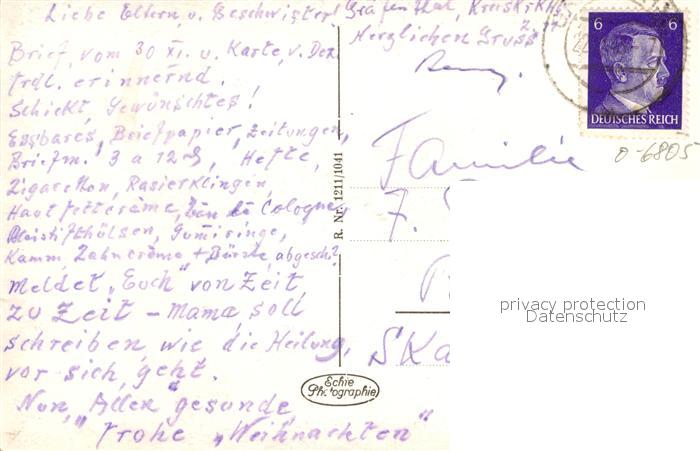 Liebe Eltern, u. Geschwister! Gräfenthal,
Herzlichen Gruss
Brief, vom 30 XI. u. Karte, v. Dez.
frdl. erinnernd.
Schickt, Gewünschtes!
Essbares, Briefpapier, Zeitungen,
Briefm. 3 a 12 ₰, Hefte,
Zigaretten, Rasierklingen,
Hautfettcréme, Cologne,
Bleistifthülsen, Gumiringe,
Kamm Zahncréme + Bürste, abgesch?
Meldet „Euch" von Zeit
zu Zeit - Mama, soll
schreiben, wie die Heilung,
vor sich, geht.
Nun, „Allen" gesunde,
frohe „Weihnachten"
R. Nr. 1211/1041
Echte
Photographie
Familie
F.
SKa
6 6
DEUTSCHES REICH
0-6805
privacy protection
Datenschutz